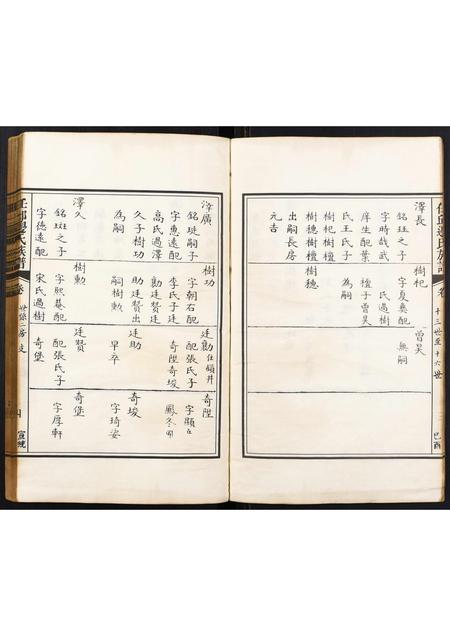 十三世至十六世
澤長
銘班之子
字時哉武
庠生配葉
氏王氏子
樹杞樹檀
樹穗樹檀
出嗣長房
元吉
樹杞
字夏奠配
氏過樹
檀子曾昊
為嗣
樹穗
曾昊
無嗣
己酉
任邱邊氏族譜
卷
宣統
澤廣
銘珽嗣子
字惠遠配
高氏過澤
久子樹功
為嗣
澤久
銘班之子
字德遠配
樹功
字朝右配
李氏子廷
勷廷贊出
助廷贊出
嗣樹勳
樹勳
字熙菴配
宋氏過樹
廷勷
仕領幷
配張氏子
奇陞奇埈
廷助
早卒
廷贊
配張氏子
奇堡
奇陞
字顯
奇埈
字琦姿
奇堡
字厚軒